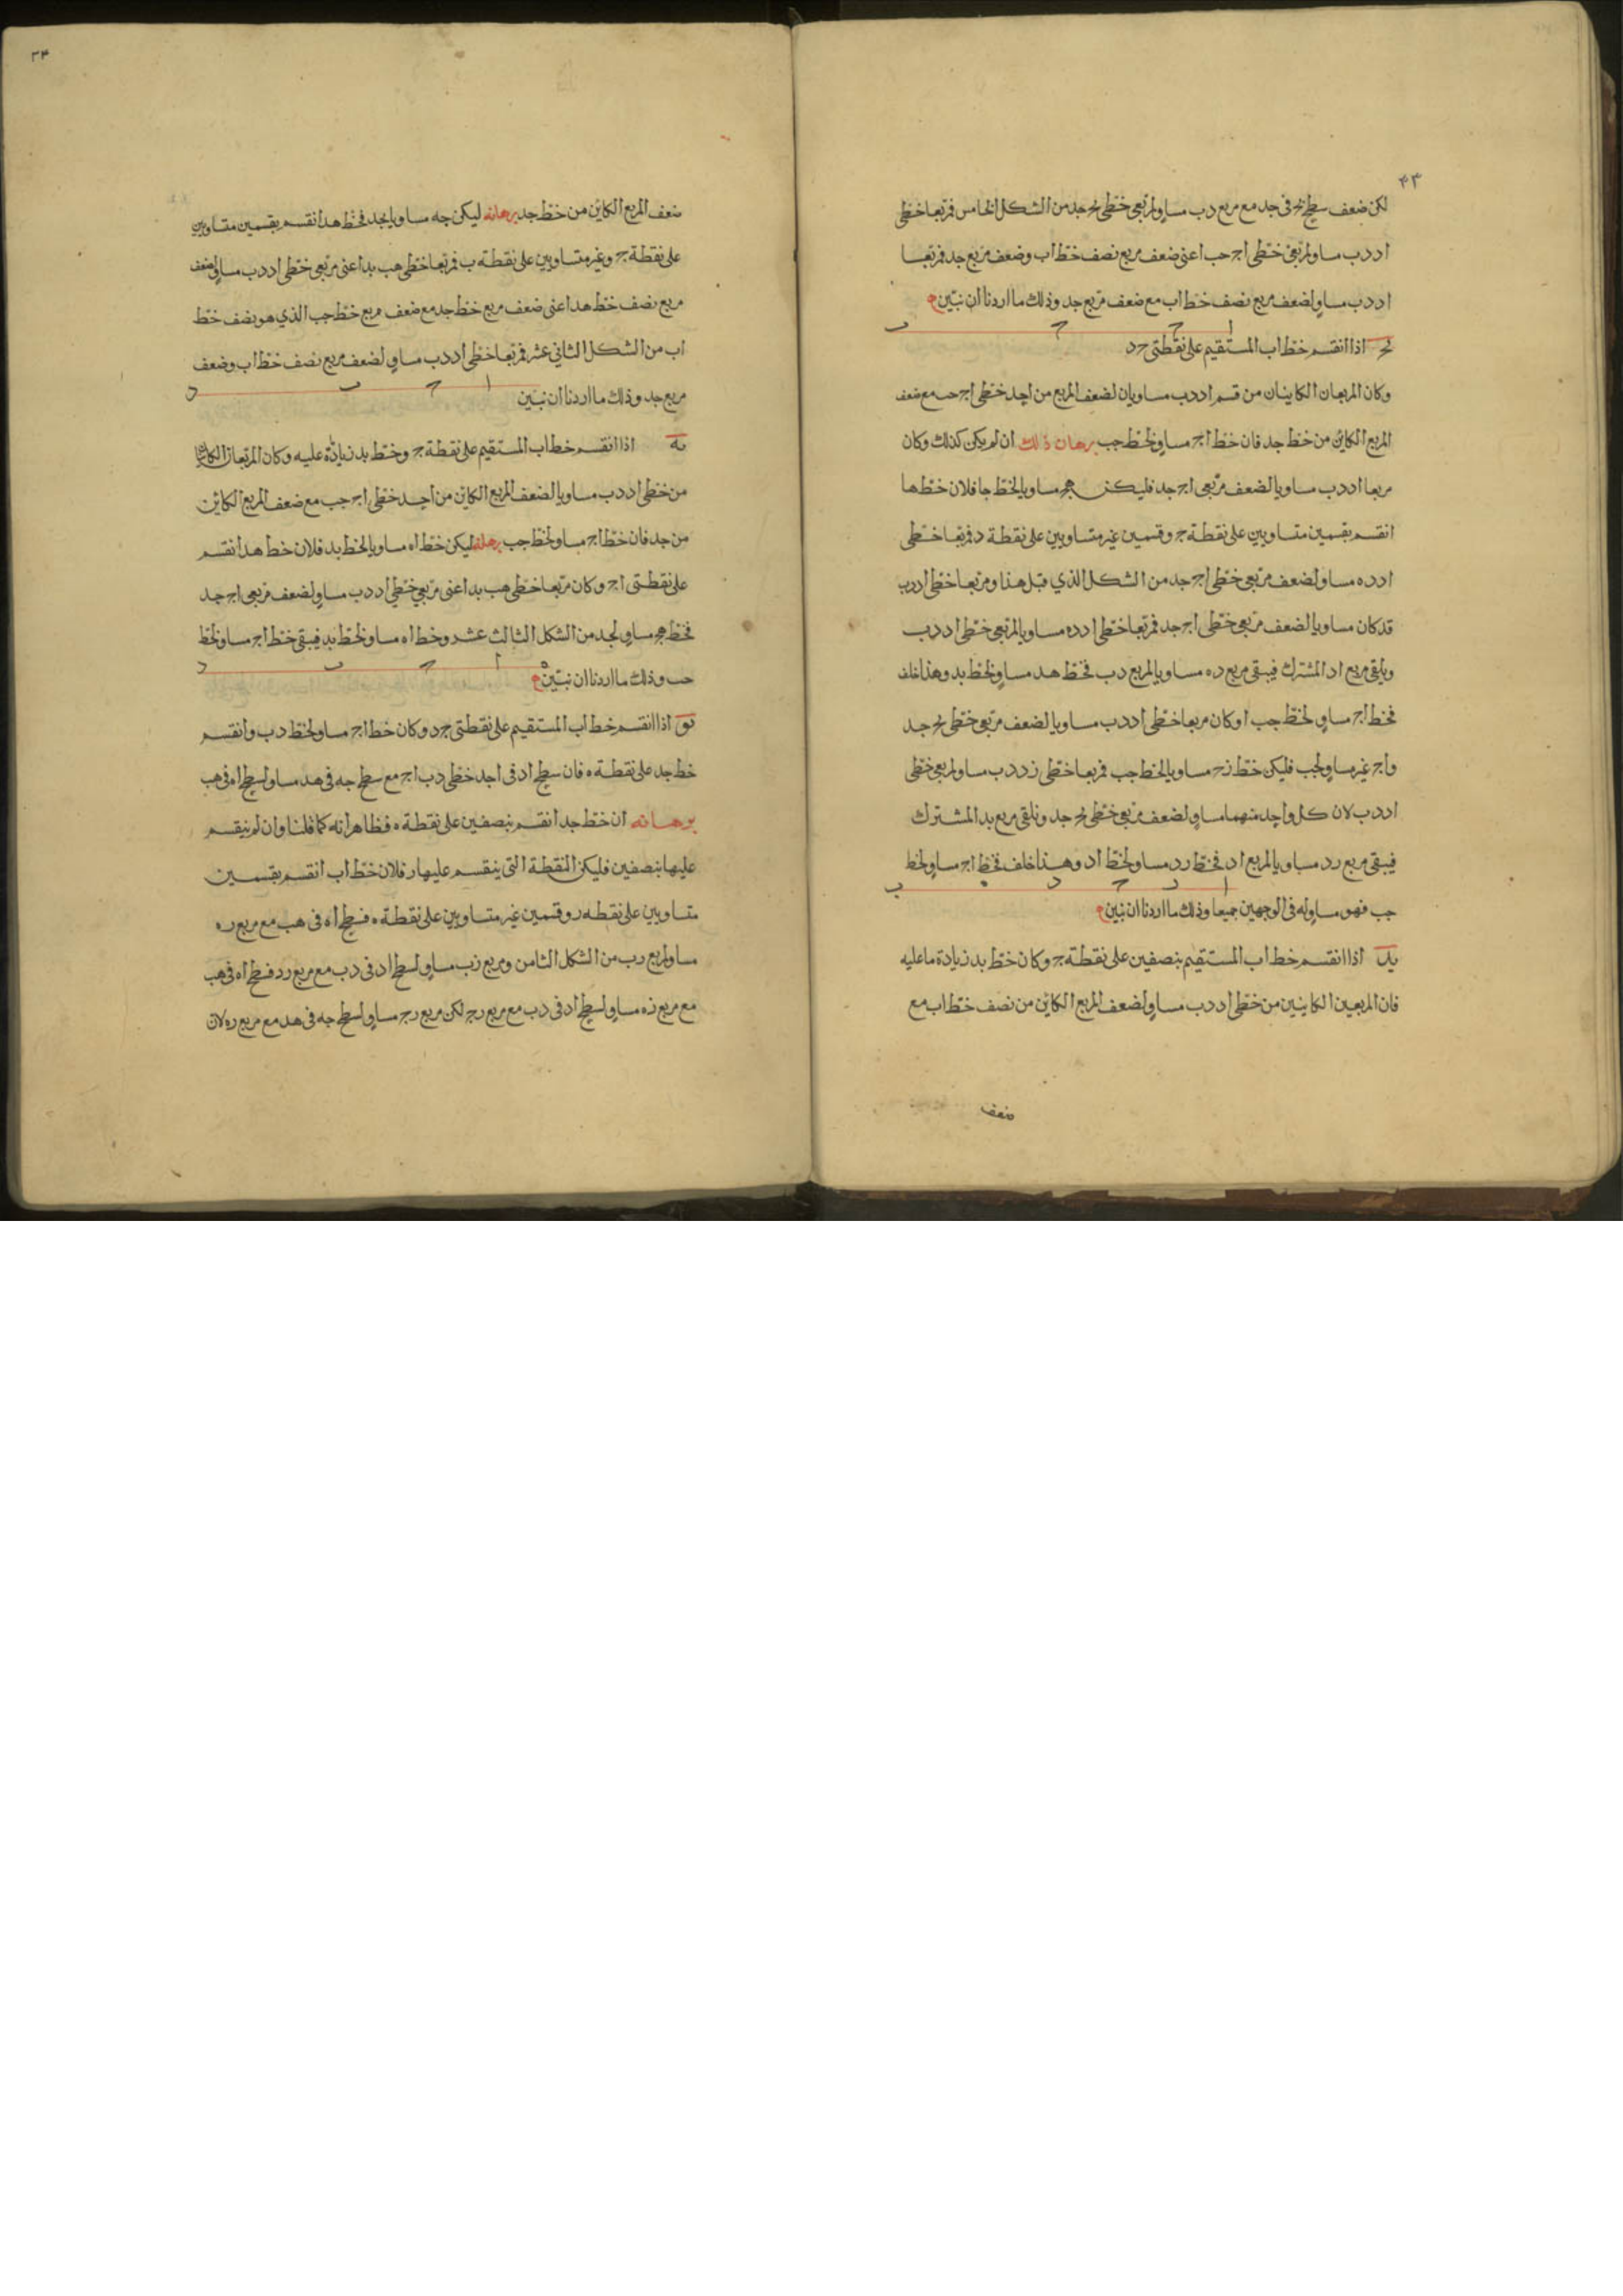 ٤٣
لكن ضعف سطح بج فى جد مع مربع دب مساو لمربعى خطى بج جد من الشكل الخامس فمربعا خطى
اد دب مساو لمربعى خطى اج جب اعنى ضعف مربع نصف خط اب وضعف مربع جد فمربعا
اد دب مساو لضعف مربع نصف خط اب مع ضعف مربع جد وذلك ما اردنا ان نبين
ا ج د ب
يج اذا انقسم خط اب المستقيم على نقطتى ج د
وكان المربعان الكاينان من قسم اد دب مساويان لضعف المربع من احد خطى اج جب مع ضعف
المربع الكاين من خط جد فان خط اج مساو لخط جب برهان ذلك ان لم يكن كذلك وكان
مربعا اد دب مساويا لضعف مربعى اج جد فليكن جه مساويا لخط جا فلان خط ها
انقسم بقسمين متساويين على نقطة ج وقسمين غير متساويين على نقطة د فمربعا خطى
اد ده مساو لضعف مربعى خطى اج جد من الشكل الذي قبل هذا ومربعا خطى اد دب
قد كان مساويا لضعف مربعى خطى اج جد فمربعا خطى اد ده مساويا لمربعى خطى اد دب
ويلقى مربع اد المشترك فيبقى مربع ده مساويا لمربع دب فخط هد مساو لخط بد وهذا خلف
فخط اج مساو لخط جب او كان مربعا خطى اد دب مساويا لضعف مربعى خطى بج جد
واج غير مساو لجب فليكن خط زج مساويا لخط جب فمربعا خطى زد دب مساو لمربعى خطى
اد دب لان كل واحد منهما مساو لضعف مربعى خطى بج جد ونلقى مربع بد المشترك
فيبقى مربع رد مساويا لمربع اد فخط رد مساو لخط اد وهذا خلف فخط اج مساو لخط
ا ر ج د ه ب
جب فهو مساو له فى الوجهين جميعا وذلك ما اردنا ان نبين
يد اذا انقسم خط اب المستقيم بنصفين على نقطة ج وكان خط بد زيادة ما عليه
فان المربعين الكاينين من خطى اد دب مساو لضعف المربع الكاين من نصف خط اب مع
ضعف
٣٤
ضعف المربع الكاين من خط جد برهانه ليكن جه مساويا لجد فخط هد انقسم بقسمين متساويين
على نقطة ج وغير متساويين على نقطة ب فمربعا خطى هب بد اعنى مربعى خطى اد دب مساو لضعف
مربع نصف خط هد اعنى ضعف مربع خط جد مع ضعف مربع خط جب الذي هو نصف خط
اب من الشكل الثانى عشر فمربعا خطى اد دب مساو لضعف مربع نصف خط اب وضعف
ا ج ب د
مربع جد وذلك ما اردنا ان نبين
يه اذا انقسم خط اب المستقيم على نقطة ج وخط بد زيادة عليه وكان المربعان الكاينان
من خطى اد دب مساويا لضعف المربع الكاين من احد خطى اج جب مع ضعف المربع الكاين
من جد فان خط اج مساو لخط جب برهانه ليكن خط اه مساويا لخط بد فلان خط هد انقسم
على نقطتى اج وكان مربعا خطى هب بد اعنى مربعى خطى اد دب مساو لضعف مربعى اج جد
فخط هج مساو لجد من الشكل الثالث عشر وخط اه مساو لخط بد فيبقى خط اج مساو لخط
ه ا ج ب د
جب وذلك ما اردنا ان نبين
يو اذا انقسم خط اب المستقيم على نقطتى ج د وكان خط اج مساو لخط دب وانقسم
خط جد على نقطة ه فان سطح اد فى احد خطى دب اج مع سطح جه فى هد مساو لسطح اه فى هب
برهانه ان خط جد انقسم بنصفين على نقطة ه فظاهر انه كما قلنا وان لم ينقسم
عليها بنصفين فليكن النقطة التى ينقسم عليها ر فلان خط اب انقسم بقسمين
متساويين على نقطه ر وقسمين غير متساويين على نقطة ه فسطح اه فى هب مع مربع ره
مساو لمربع رب من الشكل الثامن ومربع زب مساو لسطح اد فى دب مع مربع رد فسطح اه فى هب
مع مربع زه مساو لسطح اد فى دب مع مربع رج لكن مربع رج مساو لسطح جه فى هد مع مربع ره لان